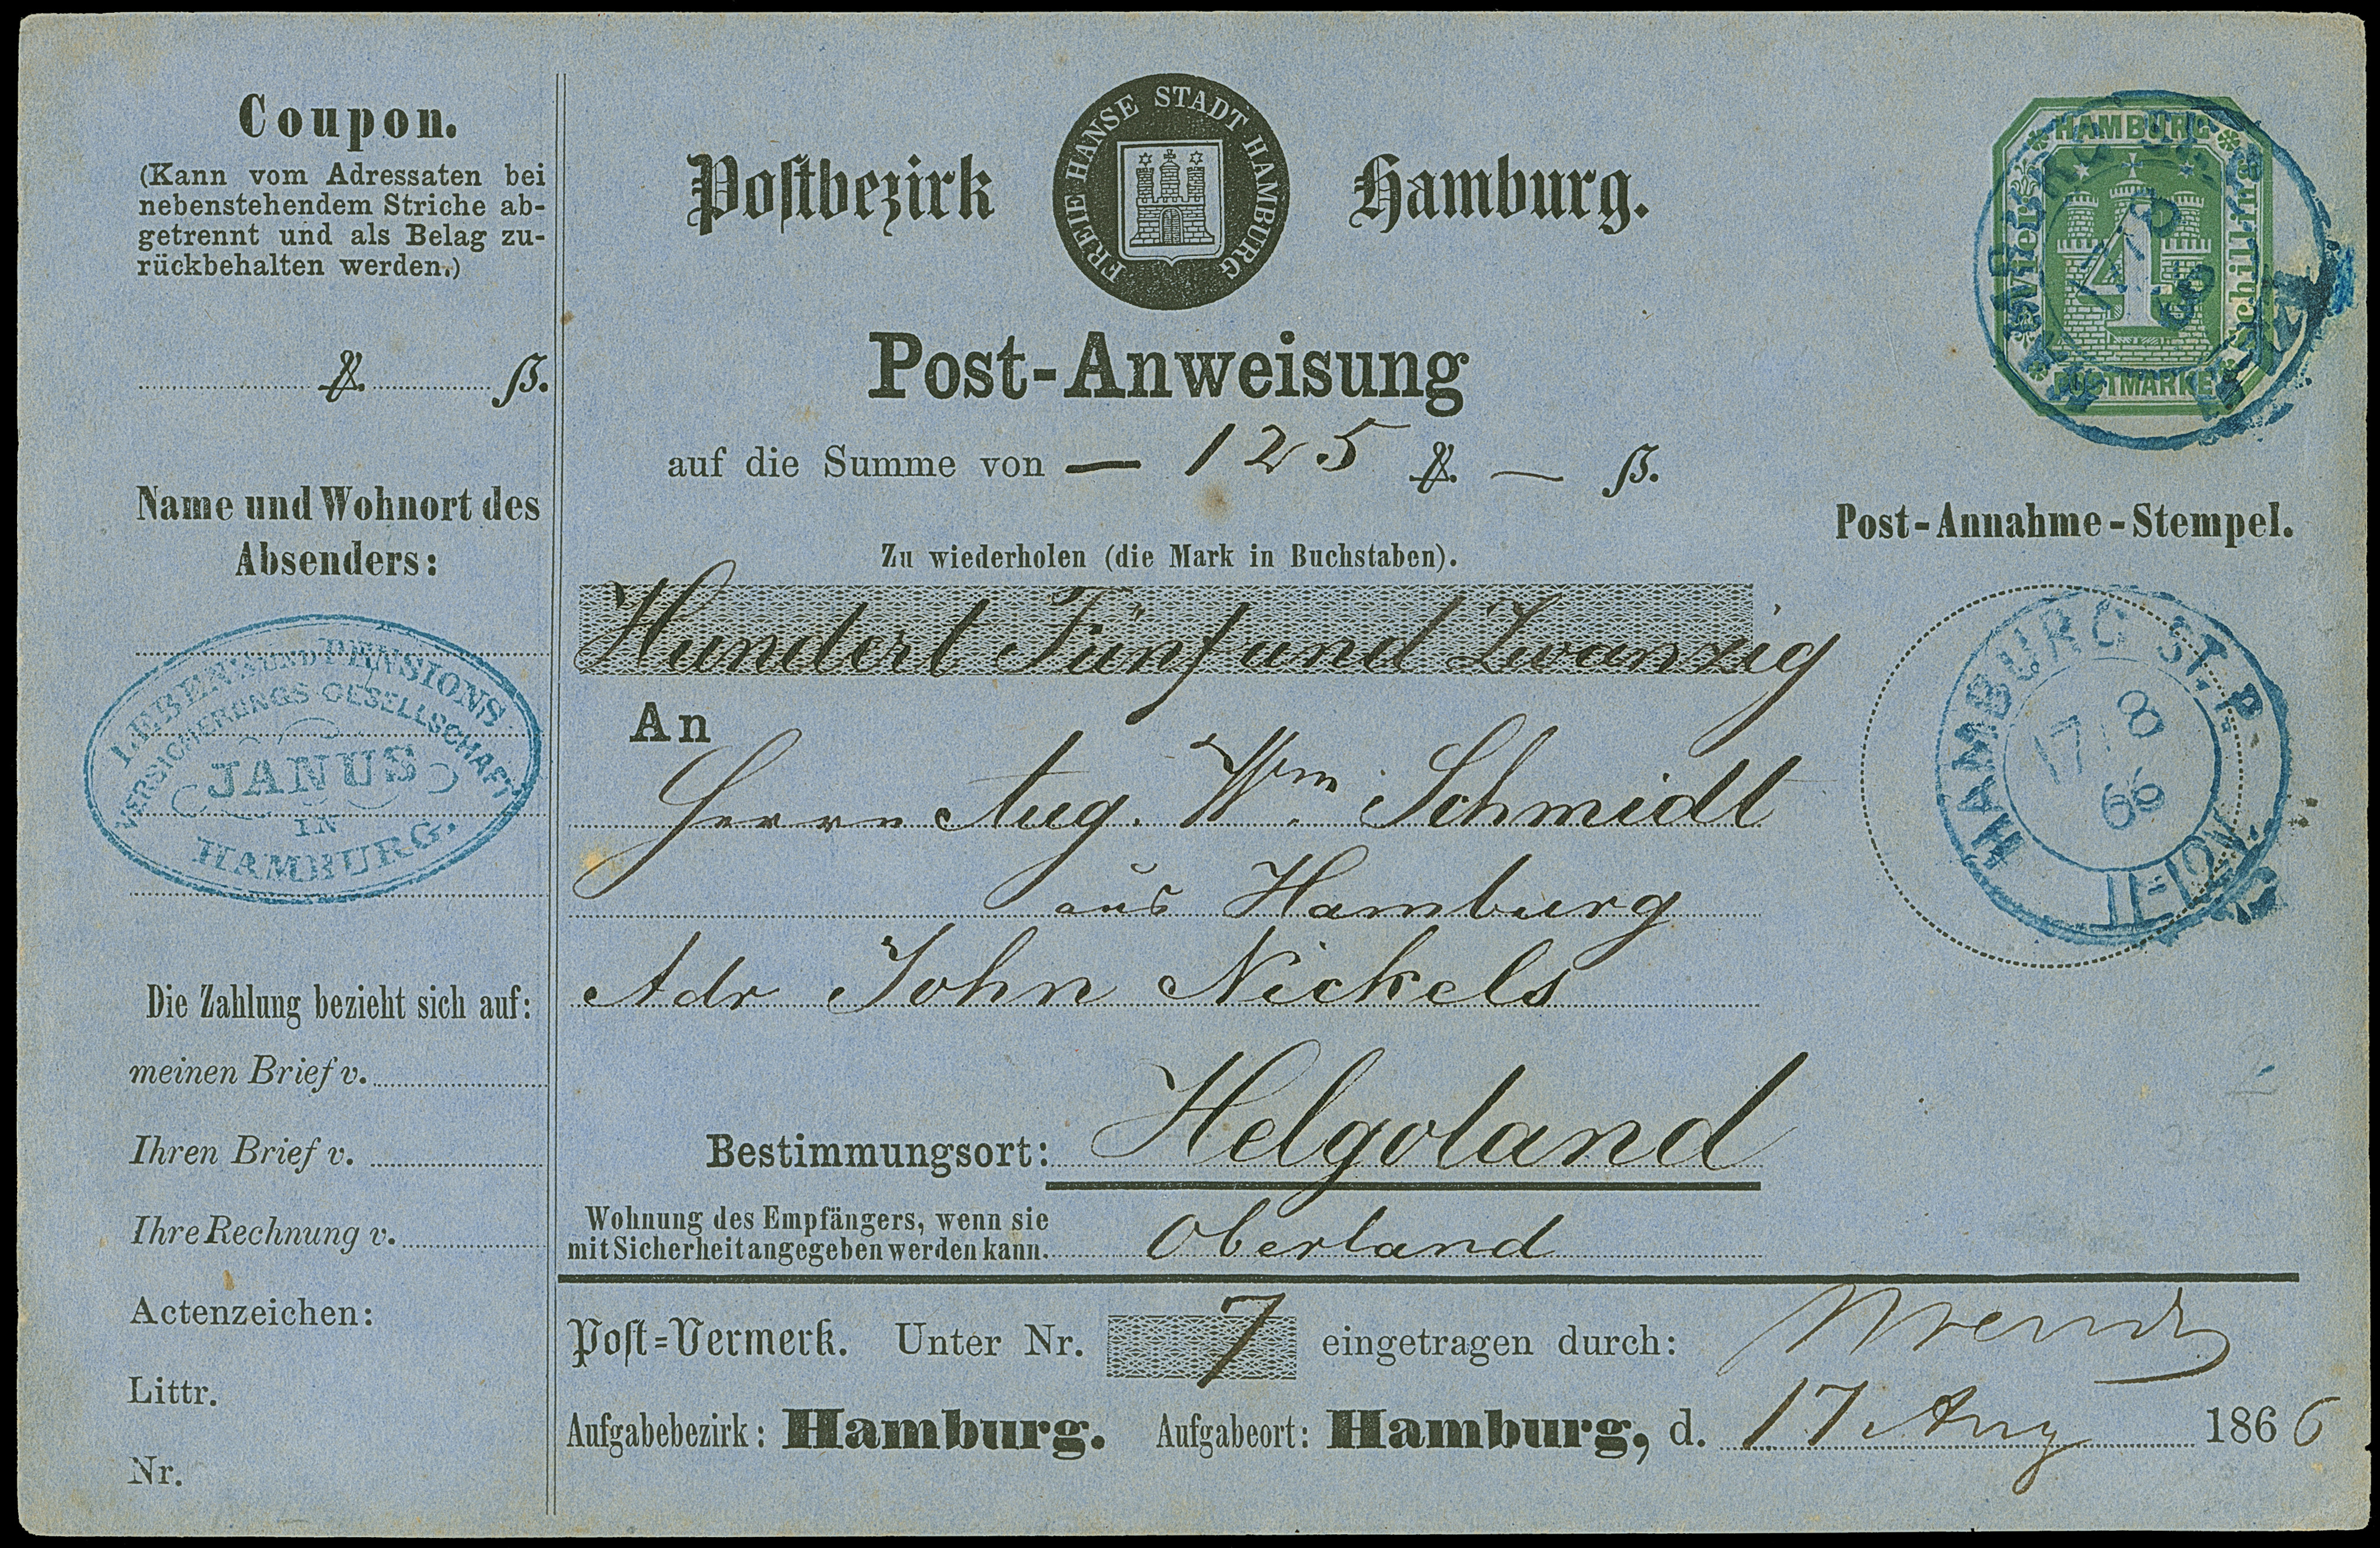 Coupon.
(Kann vom Adressaten bei
nebenstehendem Striche ab-
getrennt und als Belag zu-
rückbehalten werden.)
ß.
Name und Wohnort des
Absenders:
LEBENS UND PENSIONS
VERSICHERUNGS GESELLSCHAFT
JANUS
IN
HAMBURG.
Die Zahlung bezieht sich auf:
meinen Brief v.
Ihren Brief v.
Ihre Rechnung v.
Actenzeichen:
Littr.
Nr.
Postbezirk Hamburg.
FREIE HANSE STADT HAMBURG
Post-Anweisung
auf die Summe von — 125 — ß.
Zu wiederholen (die Mark in Buchstaben).
Hundert Fünf und Zwanzig
An
Herrn Aug. Wm Schmidt
aus Hamburg
Adr John Nickels
Bestimmungsort: Helgoland
Wohnung des Empfängers, wenn sie
mit Sicherheit angegeben werden kann. Oberland
Post-Vermerk. Unter Nr. 7 eingetragen durch:
Aufgabebezirk: Hamburg. Aufgabeort: Hamburg, d. 17 Aug 1866
HAMBURG
Vier
4
Schilling
POSTMARKE
Post-Annahme-Stempel.
HAMBURG ST. P.
17 8
66
11-12 N.